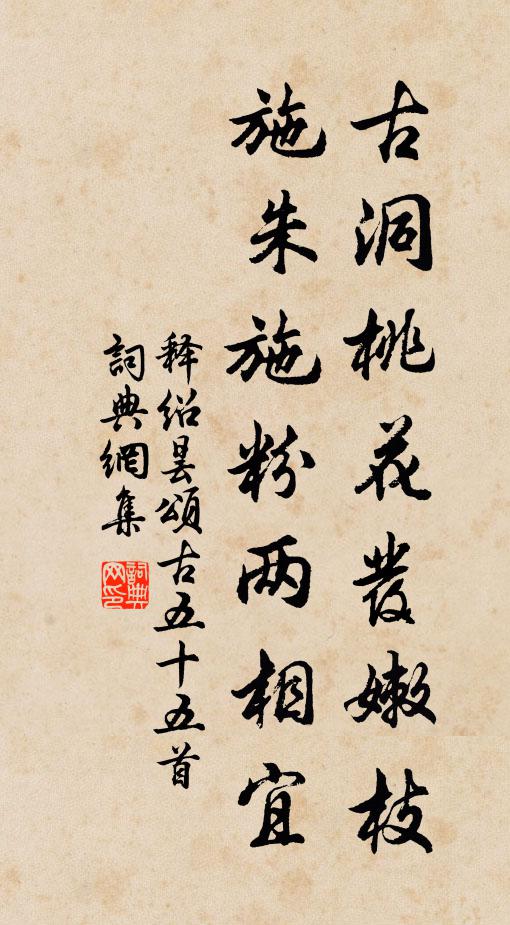 古洞桃花發嫩枝
施朱施粉两相宜
释绍昙頌古五十五首
詞典網集
詞典網印